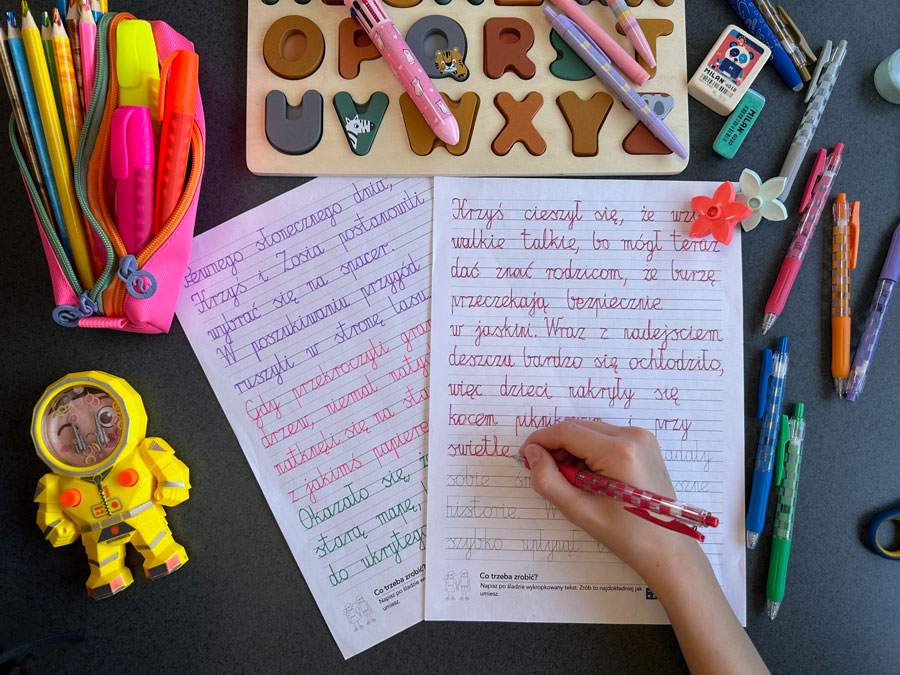 O P Q R S T
U V W X Y Z
MILAN
MILAN
słonecznego dnia,
Krzyś i Zosia postanowili
wybrać się na spacer.
W poszukiwaniu przygód
ruszyli w stronę lasu
Gdy przekroczyli
drzew, niemal
natknęli się na
z jakimś
Okazało się,
starą mapę,
do ukrytego
Co trzeba zrobić?
Napisz po śladzie
umiesz.
Krzyś cieszył się, że
walkie talkie, bo mógł teraz
dać znać rodzicom, że burzę
przeczekają bezpiecznie
w jaskini. Wraz z nadejściem
deszczu bardzo się ochłodziło,
więc dzieci nakryły się
kocem i przy
świetle
sobie
historie W
szybko upłynął
Co trzeba zrobić?
Napisz po śladzie wykropkowany tekst. Zrób to najdokładniej jak
umiesz.